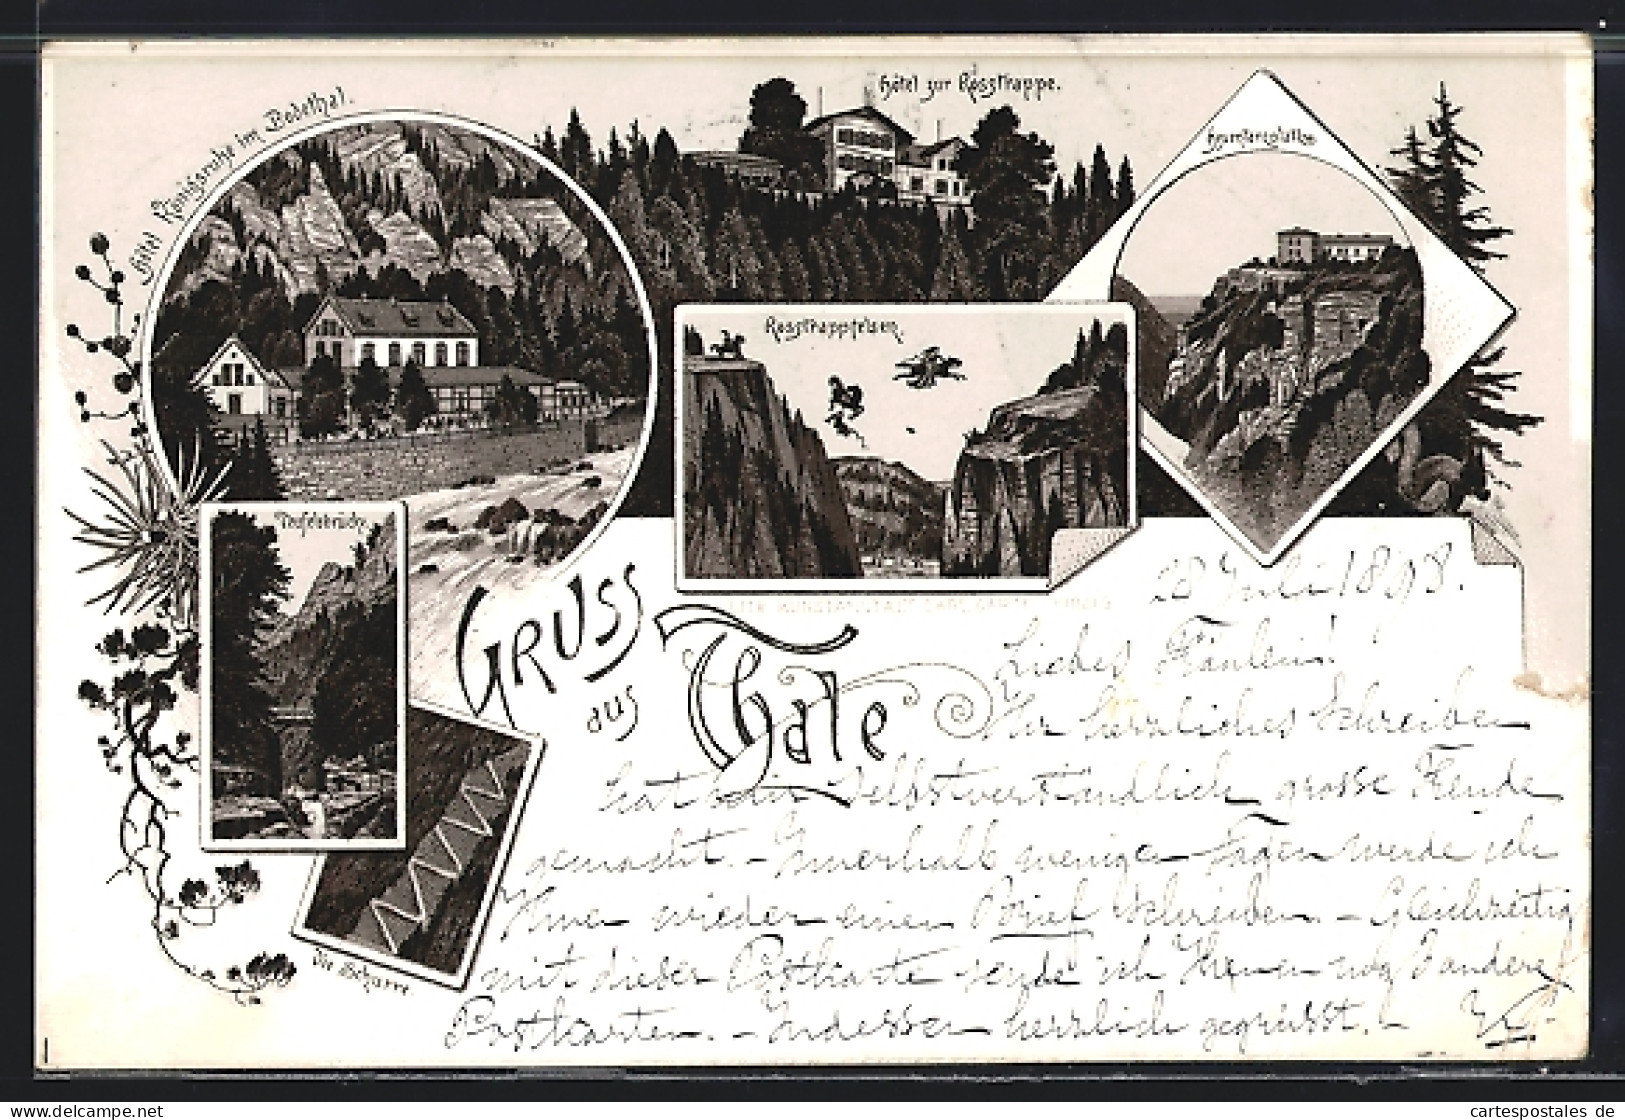 Hôtel zur Rosstrappe.
Hôtel Königsruhe im Bodethal.
Rosstrappfelsen.
Teufelsbrücke.
Die Schurre.
GRUSS
aus
Thale
28 Juli 1898.
Liebes Fräulein!
Ihr herrliches Schreiben
hat mir selbstverständlich grosse Freude
gemacht. - Innerhalb weniger Tagen werde ich
Ihnen wieder einen Brief schreiben. - Gleichzeitig
mit dieser Postkarte sende ich Ihnen noch 3 andere
Postkarten. - Indessen herzlich gegrüsst. -
cartespostales de
www.delcampe.net